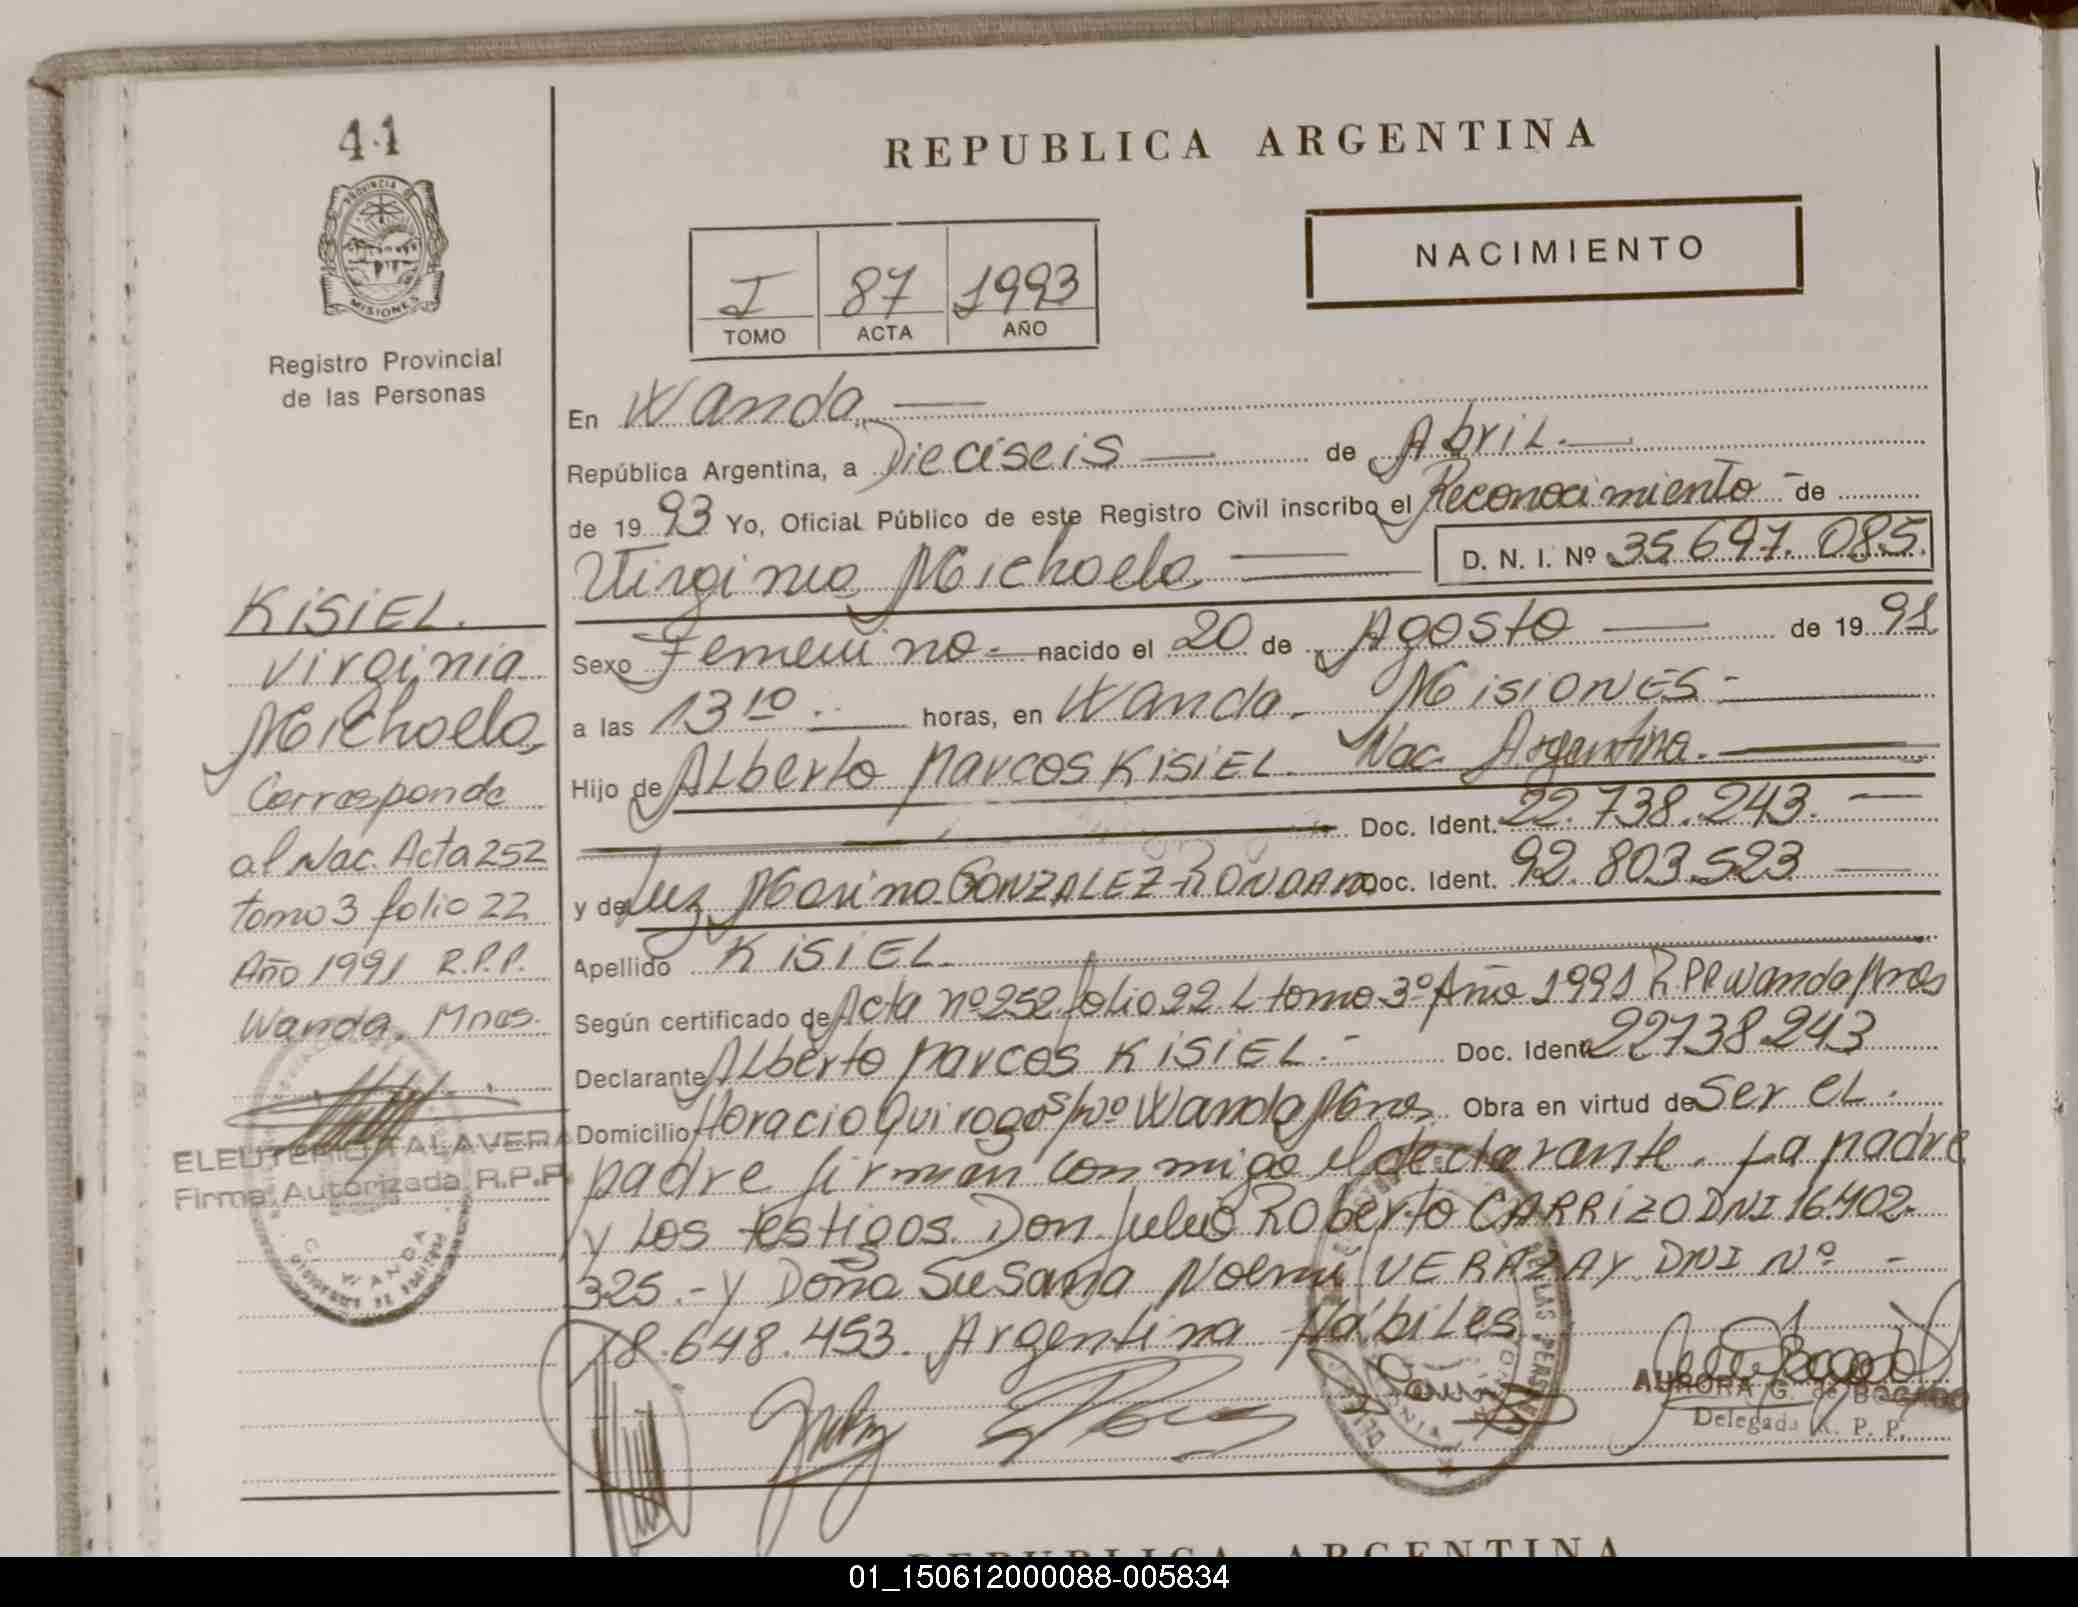 41
PROVINCIA DE
MISIONES
Registro Provincial
de las Personas
REPUBLICA ARGENTINA
NACIMIENTO
I 87 1993
TOMO ACTA AÑO
En Wanda
República Argentina, a Dieciseis de Abril.
de 1993 Yo, Oficial Público de este Registro Civil inscribo el Reconocimiento de
Virginia Michaela D. N. I. Nº 35.697.085.
Sexo Femenino. nacido el 20 de Agosto de 1991
a las 13 10 horas, en Wanda. Misiones -
Hijo de Alberto Marcos KISIEL. Nac. Argentina.
Doc. Ident. 22.738.243.
y de Luz Marina GONZALEZ RONDAN Doc. Ident. 92.803.523
Apellido KISIEL.
Según certificado de Acta nº 252 folio 22 tomo 3º Año 1991 R.P.P. Wanda Mnes
Declarante Alberto Marcos KISIEL.- Doc. Ident. 22738243
Domicilio Horacio Quiroga s/nº Wanda Mnes. Obra en virtud de Ser el.
padre firman conmigo el declarante. La madre
y los testigos. Don Julio Roberto CARRIZO DNI 16.402.
325.- y Doña Susana Noemi VERAZAY DNI Nº -
18.648.453. Argentina Hábiles
AURORA G. de BOGADO
Delegada R. P. P.
KISIEL.
Virginia
Michaela
Corresponde
al Nac. Acta 252
tomo 3 folio 22
Año 1991 R.P.P.
Wanda. Mnes.
ELEUTERIO TALAVERA
Firma Autorizada R.P.P.
WANDA
REPUBLICA ARGENTINA
01_150612000088-005834